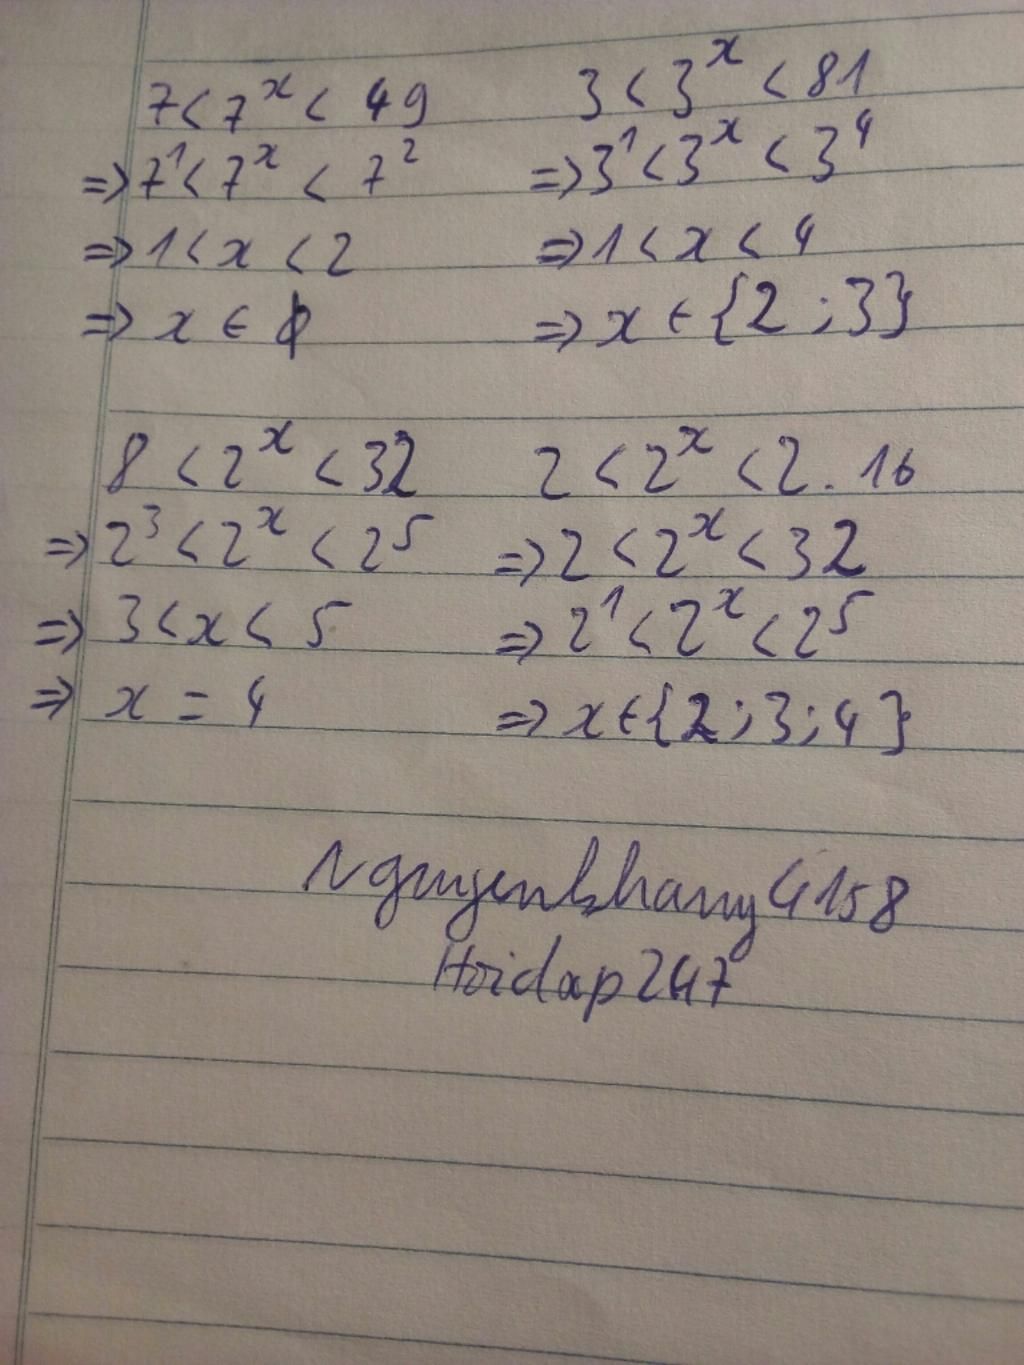 7 < 7^x < 49
=> 7^1 < 7^x < 7^2
=> 1 < x < 2
=> x ∈ ϕ
3 < 3^x < 81
=> 3^1 < 3^x < 3^4
=> 1 < x < 4
=> x ∈ {2 ; 3}
8 < 2^x < 32
=> 2^3 < 2^x < 2^5
=> 3 < x < 5
=> x = 4
2 < 2^x < 2 . 16
=> 2 < 2^x < 32
=> 2^1 < 2^x < 2^5
=> x ∈ {2 ; 3 ; 4}
Nguyenkhang4158
Hoidap247